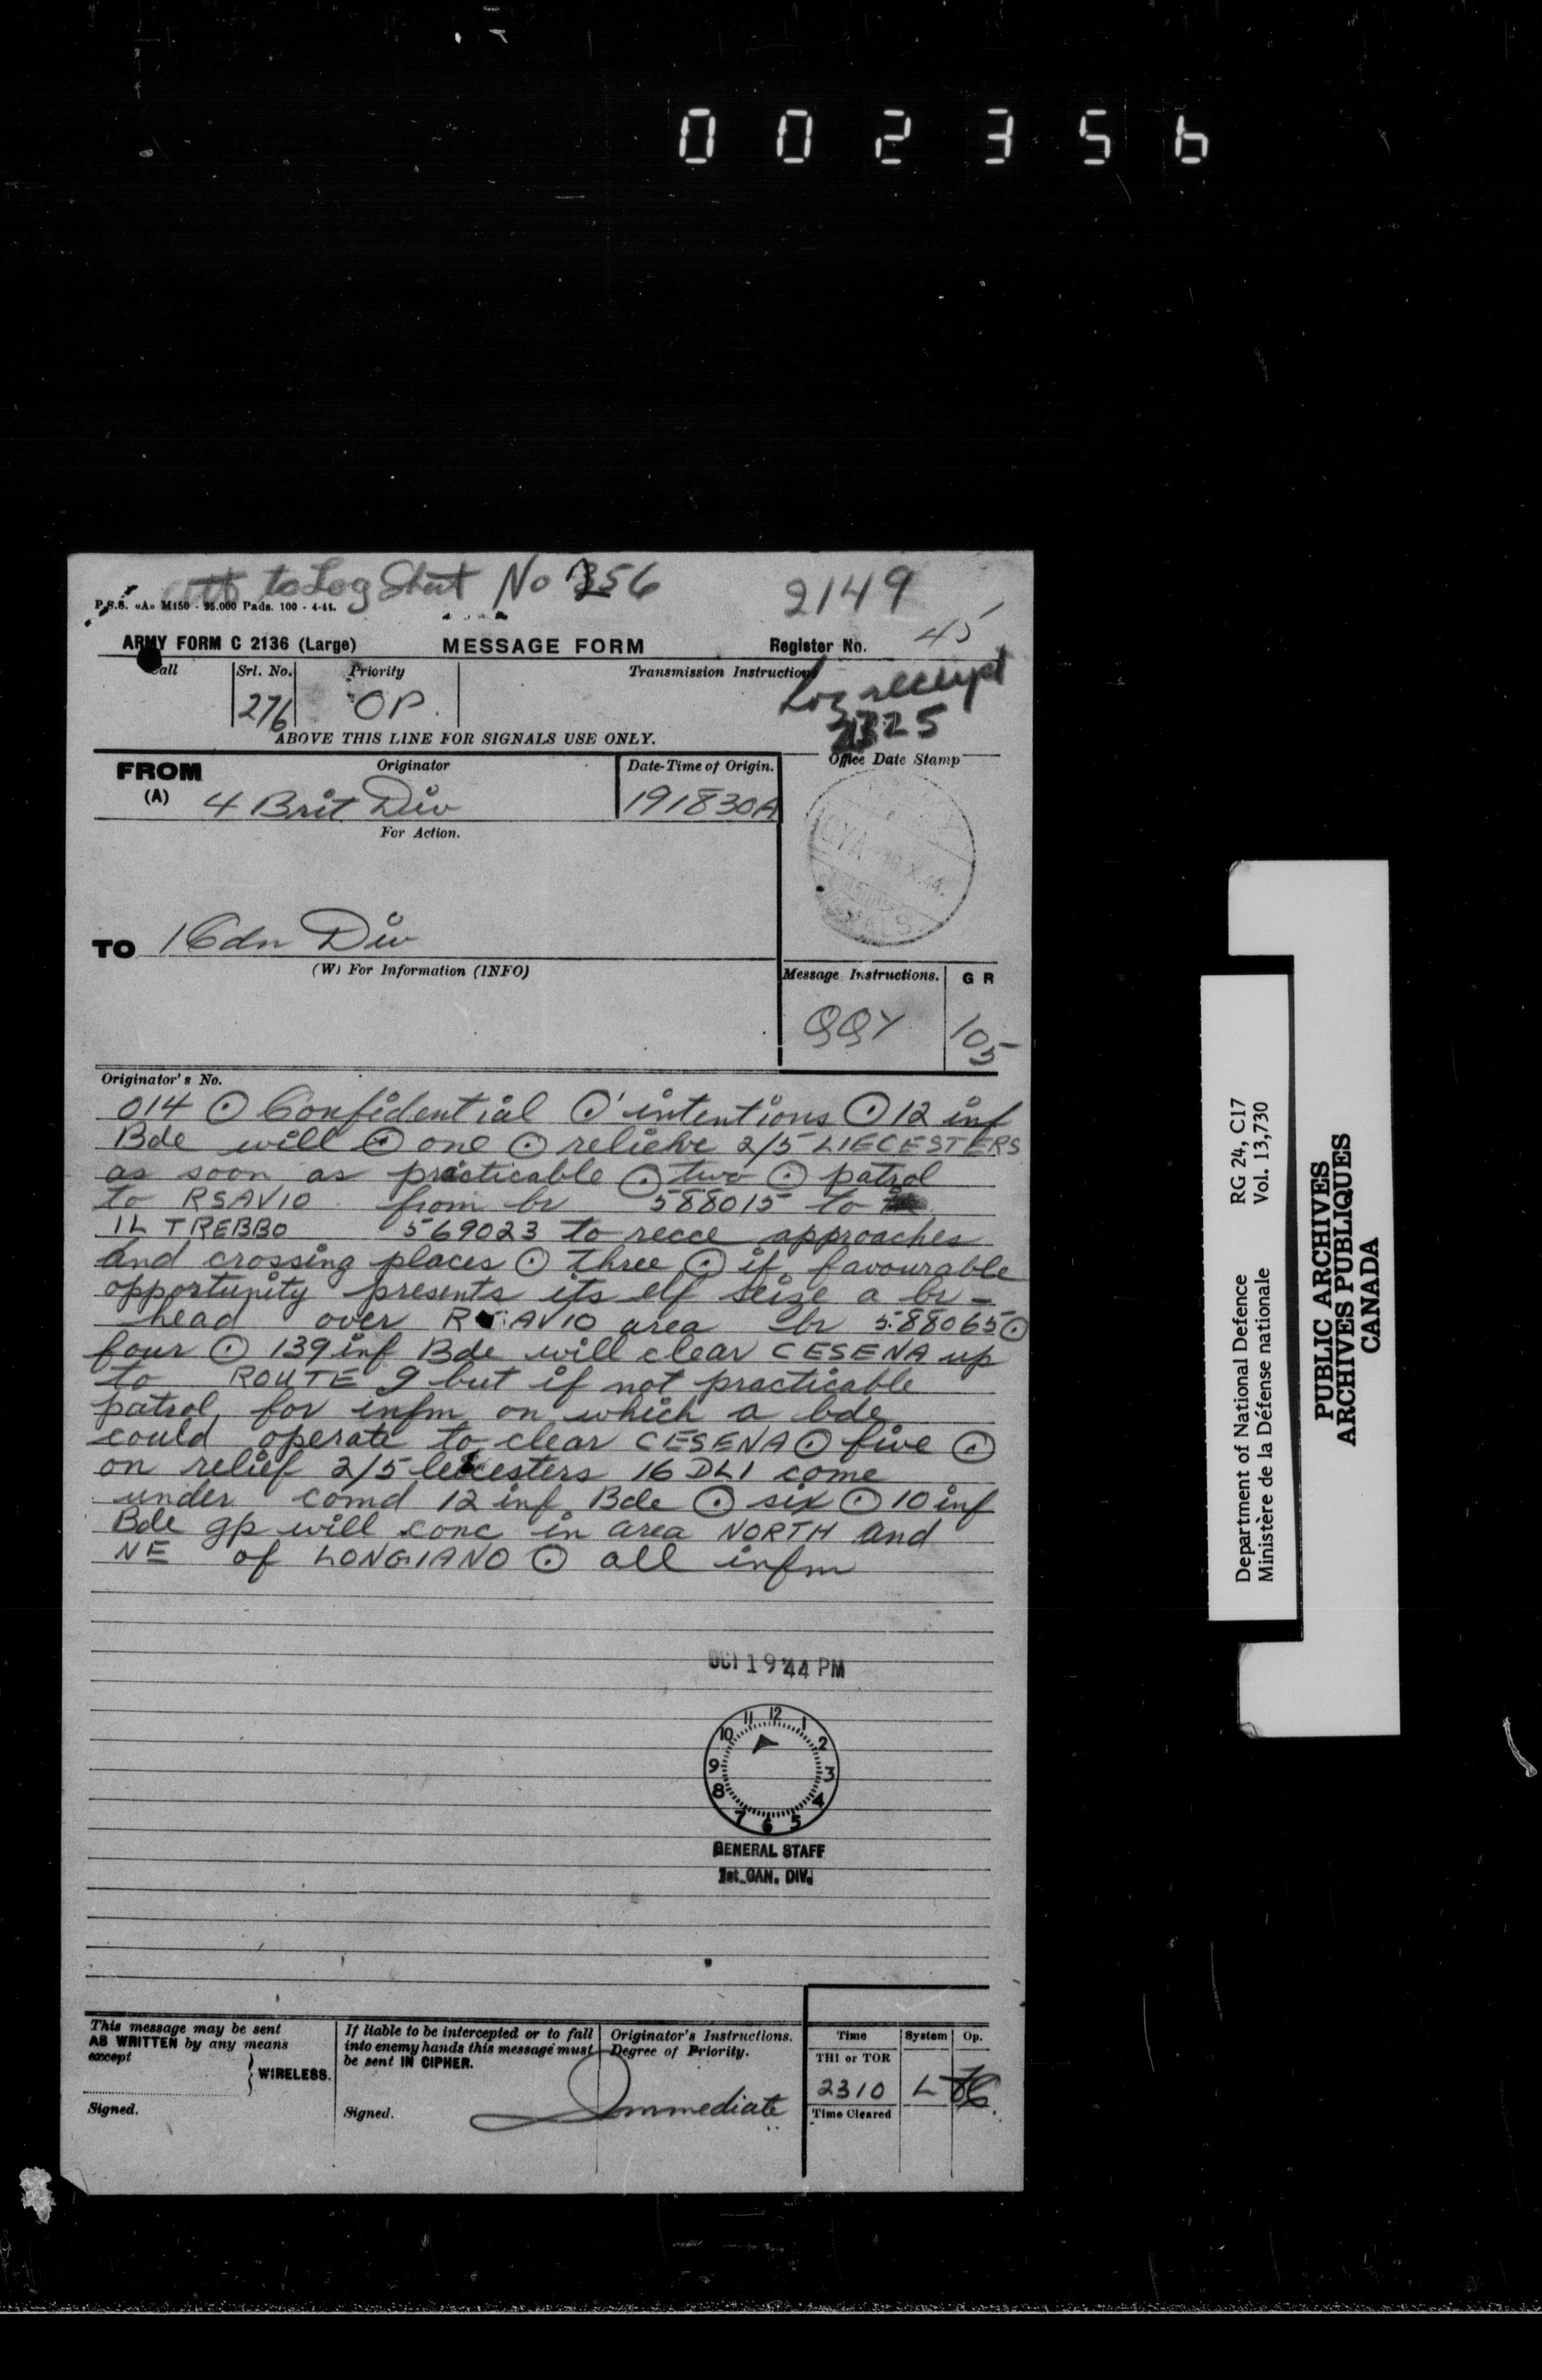 002356
att to Log Sheet No 356
2149
P.S.S. «A» M150 - 95.000 Pads. 100 - 4-44.
45
ARMY FORM C 2136 (Large) MESSAGE FORM Register No.
Call Srl. No. Priority Transmission Instructions
276 OP.
Log receipt
2325
ABOVE THIS LINE FOR SIGNALS USE ONLY.
FROM Originator Date-Time of Origin. Office Date Stamp
(A) 4 Brit Div 191830A
For Action.
TO 1 Cdn Div
(W) For Information (INFO)
Message Instructions. G R
QQY 105
Originator's No.
014 ⊙ Confidential ⊙ intentions ⊙ 12 inf
Bde will ⊙ one ⊙ relieve 2/5 LIECESTERS
as soon as practicable ⊙ two ⊙ patrol
to RSAVIO from br 588015 to
IL TREBBO 569023 to recce approaches
and crossing places ⊙ three ⊙ if favourable
opportunity presents its elf seize a br-
head over R AVIO area br 588065 ⊙
four ⊙ 139 inf Bde will clear CESENA up
to ROUTE 9 but if not practicable
patrol for infm on which a bde
could operate to clear CESENA ⊙ five ⊙
on relief 2/5 leicesters 16 DLI come
under comd 12 inf Bde ⊙ six ⊙ 10 inf
Bde gp will conc in area NORTH and
NE of LONGIANO ⊙ all infm
OCT 19 '44 PM
11 12 1
10 2
9 3
8 4
7 6 5
GENERAL STAFF
1st CAN. DIV.
This message may be sent
AS WRITTEN by any means
except
WIRELESS.
Signed.
If liable to be intercepted or to fall
into enemy hands this message must
be sent IN CIPHER.
Signed.
Originator's Instructions.
Degree of Priority.
Immediate
Time System Op.
THI or TOR
2310 L
Time Cleared
Department of National Defence RG 24, C17
Ministère de la Défense nationale Vol. 13,730
PUBLIC ARCHIVES
ARCHIVES PUBLIQUES
CANADA